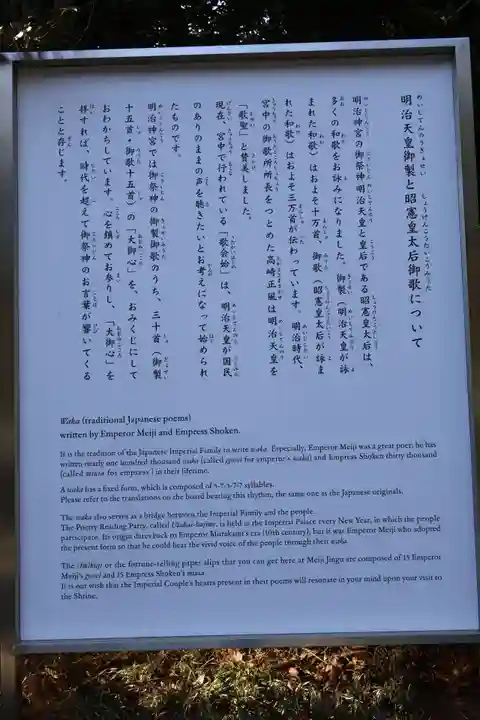 明治天皇御製と昭憲皇太后御歌について
明治神宮の御祭神明治天皇と皇后である昭憲皇太后は、
多くの和歌をお詠みになりました。御製（明治天皇が詠
まれた和歌）はおよそ十万首、御歌（昭憲皇太后が詠ま
れた和歌）はおよそ三万首が伝わっています。明治時代、
宮中の御歌所所長をつとめた高崎正風は明治天皇を
「歌聖」と賛美しました。
現在、宮中で行われている「歌会始」は、明治天皇が国民
のありのままの声を聴きたいとお考えになって始められ
たものです。
明治神宮では御祭神の御製御歌のうち、三十首（御製
十五首・御歌十五首）の「大御心」を、おみくじにして
おわかちしています。心を鎮めてお参りし、「大御心」を
拝すれば、時代を超えて御祭神のお言葉が響いてくる
ことと存じます。
Waka (traditional Japanese poems)
written by Emperor Meiji and Empress Shoken.
It is the tradition of the Japanese Imperial Family to write waka. Especially, Emperor Meiji was a great poet; he has
written nearly one hundred thousand waka (called gyosei for emperor's waka) and Empress Shoken thirty thousand
(called miuta for empress') in their lifetime.
A waka has a fixed form, which is composed of 5-7-5-7-7 syllables.
Please refer to the translations on the board bearing this rhythm, the same one as the Japanese originals.
The waka also serves as a bridge between the Imperial Family and the people.
The Poetry Reading Party, called Utakai-hajime, is held at the Imperial Palace every New Year, in which the people
participate. Its origin dates back to Emperor Murakami's era (10th century), but it was Emperor Meiji who adopted
the present form so that he could hear the vivid voice of the people through their waka.
The Omikuji or the fortune-telling paper slips that you can get here at Meiji Jingu are composed of 15 Emperor
Meiji's gyosei and 15 Empress Shoken's miuta.
It is our wish that the Imperial Couple's hearts present in their poems will resonate in your mind upon your visit to
the Shrine.